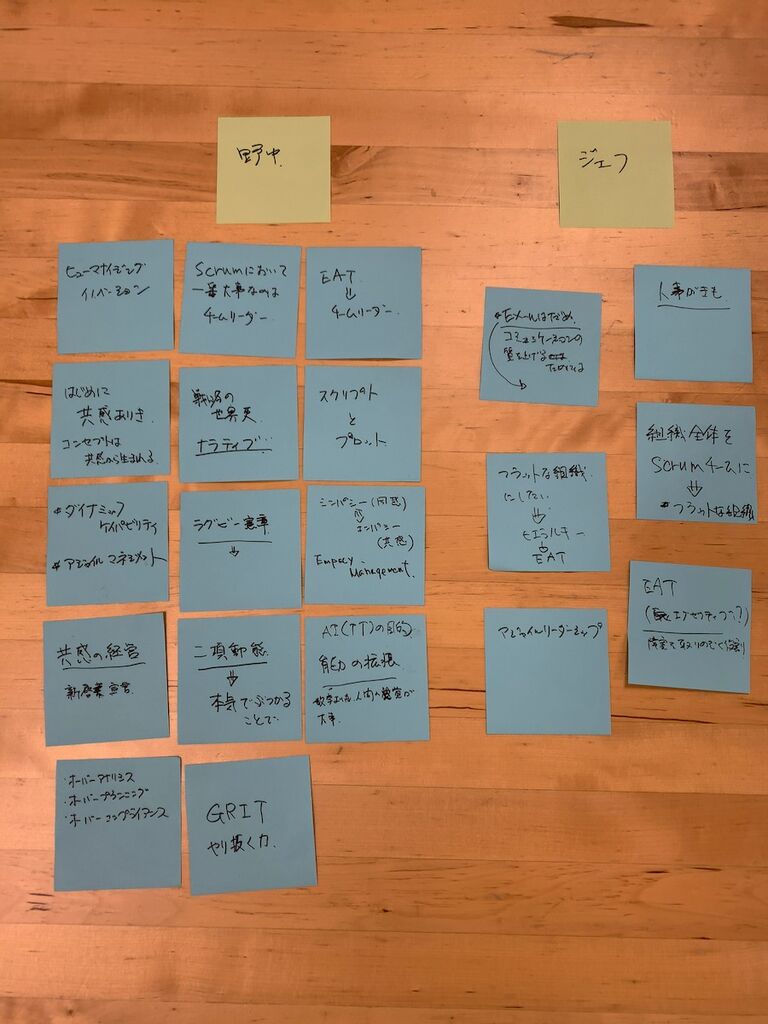 野中
ジェフ
ヒューマナイジング
イノベーション
Scrumにおいて
一番大事なのは
チームリーダー
EAT
↓
チームリーダー
はじめに
共感ありき
コンセプトは
共感から生まれる
ナラティブ
スクリプト
と
プロット
*ダイナミック
ケイパビリティ
*アジャイルマネジメント
ラグビー憲章
↓
シンパシー(同感)
エンパシー
(共感)
Empacy
Management
共感の経営
新啓蒙宣言
二項動態
↓
本気でぶつかる
ことで
AI(IT)の目的
能力の拡張
大事
・オーバーアナリシス
・オーバープランニング
・オーバーコンプライアンス
GRIT
やり抜く力
*Eメールはだめ
コミュニケーションの
質を上げる
ためには
人事がきも
フラットな組織
にしたい
↓
ヒエラルキー
↓
EAT
組織全体を
Scrumチームに
↓
*フラットな組織
アジャイルリーダーシップ
EAT
障害を取りのぞく役割